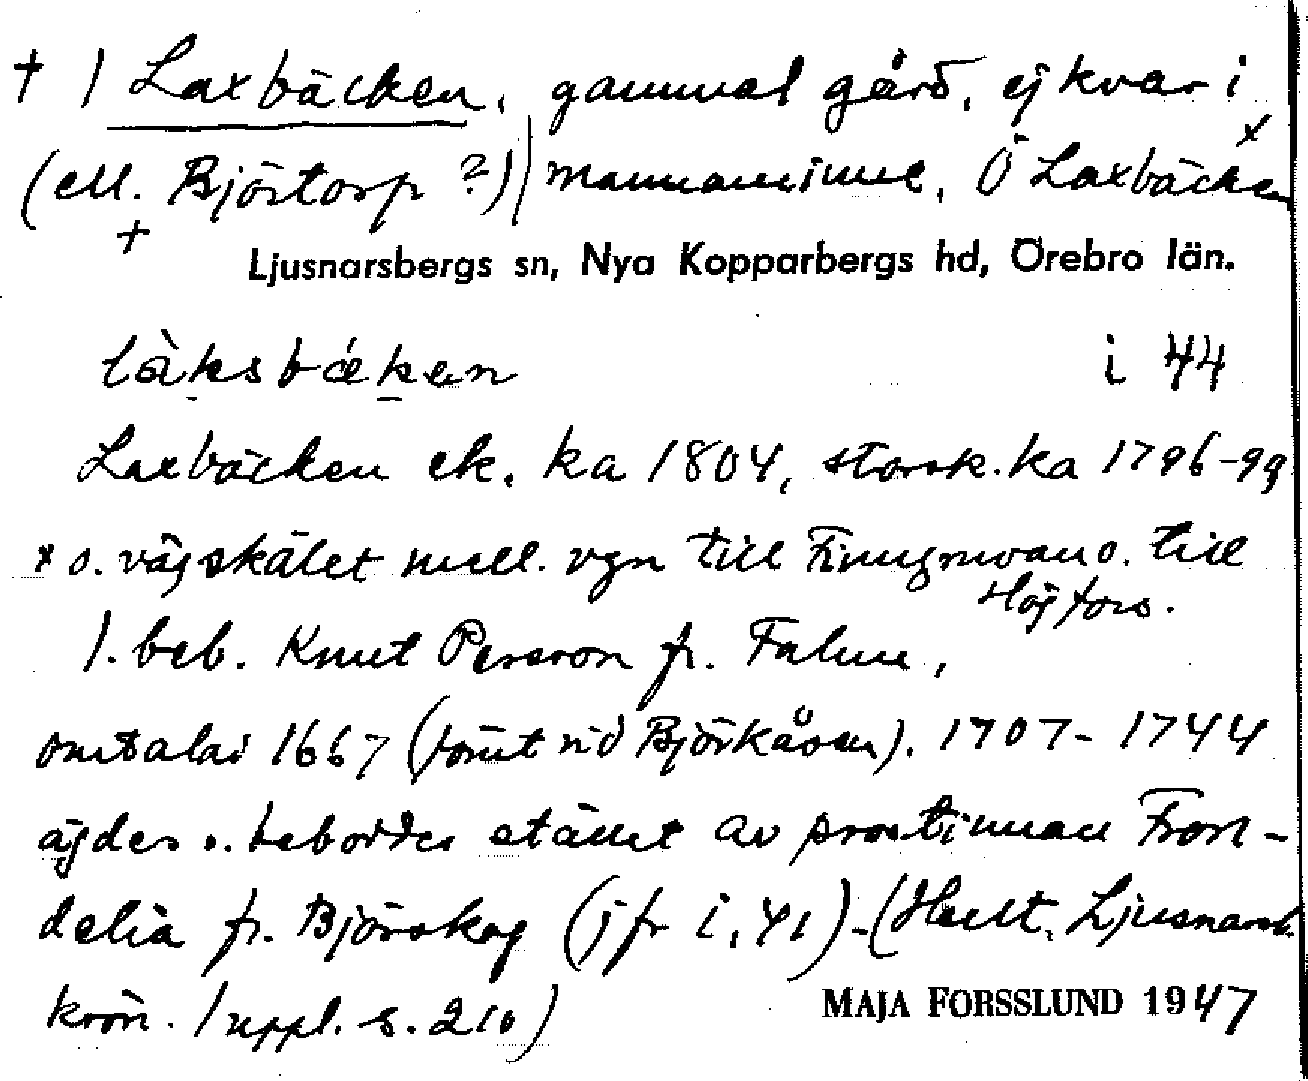 † 1 Laxbäcken, gammal gård, ej kvar i
(ell. Björtorp ?) mannaminne, Ö Laxbäcken x
†
Ljusnarsbergs sn, Nya Kopparbergs hd, Örebro län.
làksbǽken i 44
Laxbäcken ek. ka 1804, storsk. ka 1796-99
x o. vägskälet mell. vgn till Finngruvan o. till
Högfors.
1. beb. Knut Persson fr. Falun,
omtalas 1667 (tomt vid Björkåsen). 1707-1744
ägdes o. beboddes stället av prostinnan Fron-
delia fr. Björskog (jfr i, 41) - (Hult, Ljusnarsb.
krön. 1 uppl. s. 210)
MAJA FORSSLUND 1947